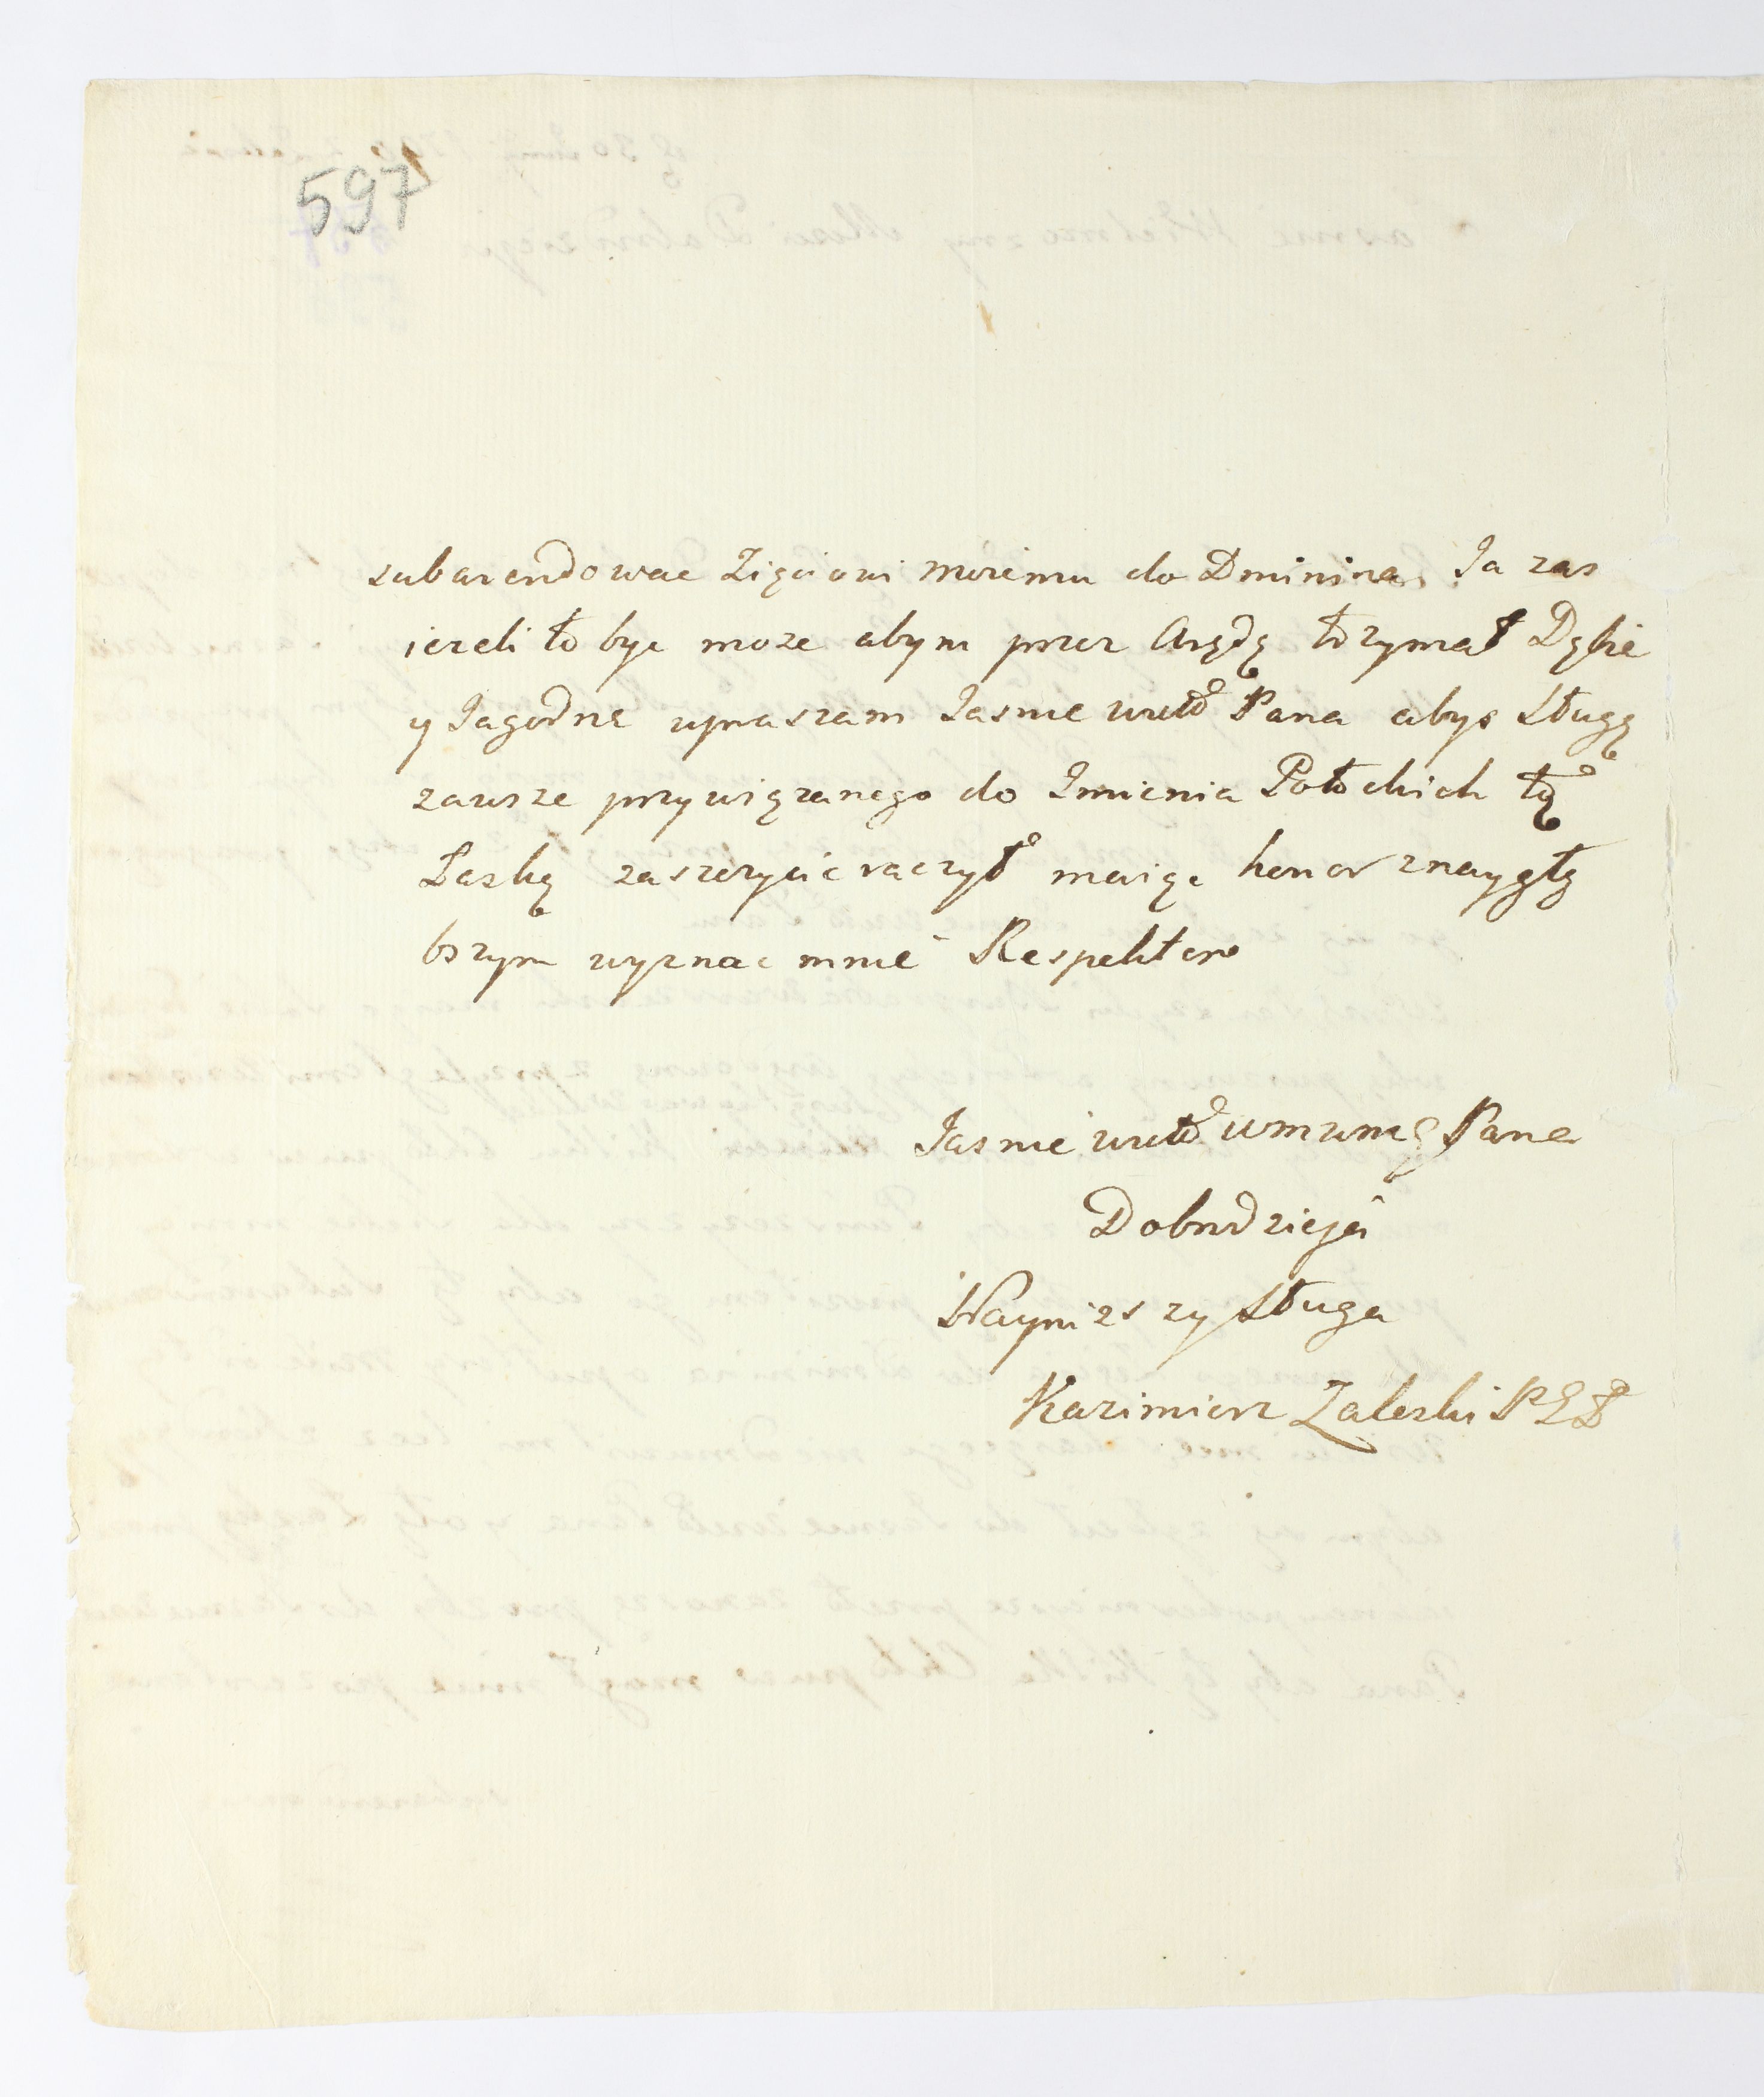 597
subarendowac Zięciowi moiemu do Dminina. Ja zas
iezeli to byc moze abym przez Arędę trzymał Dębie
y Jagodne upraszam Jasnie wielo Pana abys Sługę
zawsze przywięzanego do Imienia Potockich tę
Łaskę zaszczycic raczył maiąc honor znaygłę
bszym wyznac mnie Respektem
Jasnie wielo Pana
Dobrodzieja
Naynizszy Sługa
Kazimierz Zaleski